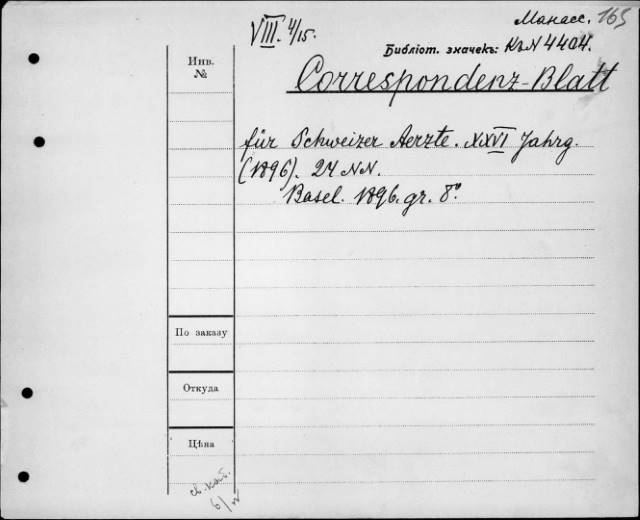 Манасс. 165
VIII. 4/15.
Библіот. значекъ: Къ N 4404.
Инв.
№
Correspondenz-Blatt
für Schweizer Aerzte. XXVI Jahrg.
(1896). 24 NN.
Basel. 1896. gr. 8°.
По заказу
Откуда
Цѣна
св. кат.